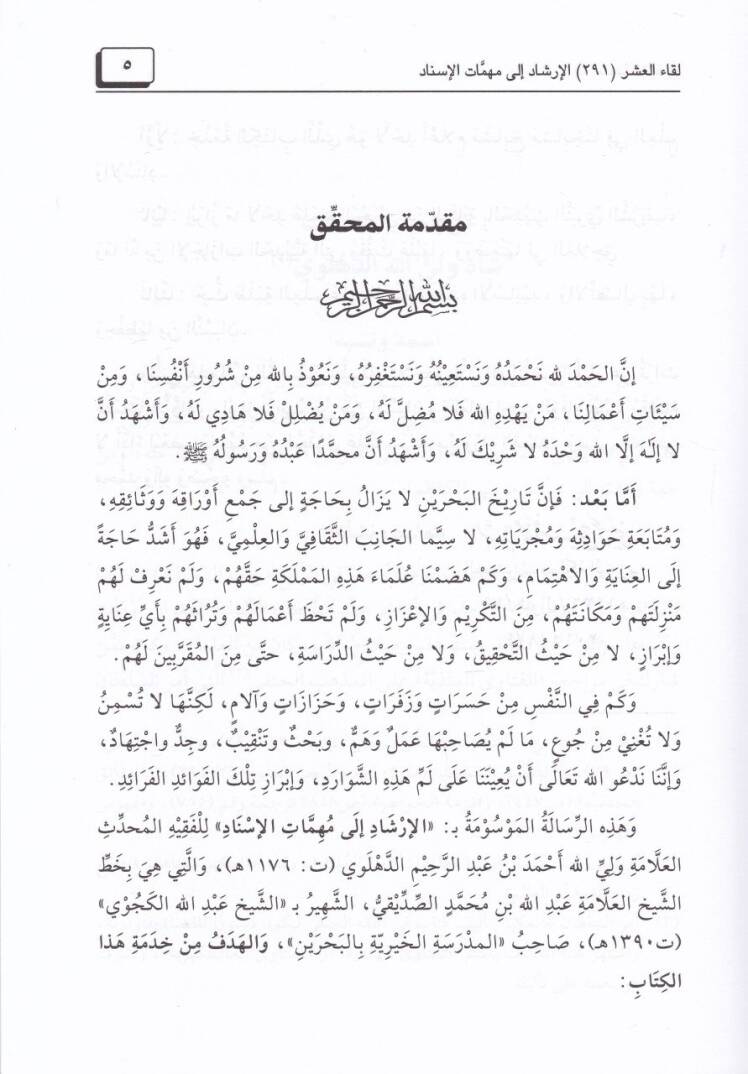 لقاء العشر (٢٩١) الإرشاد إلى مهمَّات الإسناد
٥
مقدّمة المحقِّق
بسم الله الرحمن الرحيم
إنَّ الحَمْدَ لله نَحْمَدُهُ وَنَسْتَعِيْنُهُ وَنَسْتَغْفِرُهُ، وَنَعُوْذُ بِالله مِنْ شُرُورِ أَنْفُسِنَا، وَمِنْ
سَيِّئَاتِ أَعْمَالِنَا، مَنْ يَهْدِهِ الله فَلا مُضِلَّ لَهُ، وَمَنْ يُضْلِلْ فَلا هَادِي لَهُ، وَأَشْهَدُ أَنَّ
لا إلٰهَ إلَّا الله وَحْدَهُ لا شَرِيْكَ لَهُ، وَأَشْهَدُ أَنَّ محمَّدًا عَبْدُهُ وَرَسُولُهُ ﷺ.
أَمَّا بَعْد: فَإنَّ تَارِيْخَ البَحْرَيْنِ لا يَزَالُ بِحَاجَةٍ إلى جَمْعِ أَوْرَاقِهِ وَوَثَائِقِهِ،
وَمُتَابَعَةِ حَوَادِثِهِ وَمُجْرَيَاتِهِ، لا سِيَّما الجَانِبَ الثَّقَافِيَّ وَالعِلْمِيَّ، فَهُوَ أَشَدُّ حَاجَةً
إلَى العِنَايَةِ وَالاهْتِمَامِ، وَكَمْ هَضَمْنَا عُلَمَاءَ هَذِهِ المَمْلَكَةِ حَقَّهُمْ، وَلَمْ نَعْرِفْ لَهُمْ
مَنْزِلَتَهمْ وَمَكَانَتَهُمْ، مِنَ التَّكْرِيْمِ وَالإعْزَازِ، وَلَمْ تَحْظَ أَعْمَالَهُمْ وَتُرَاثَهُمْ بِأَيِّ عِنَايَةٍ
وَإبْرَازٍ، لا مِنْ حَيْثُ التَّحْقِيقُ، وَلا مِنْ حَيْثُ الدِّرَاسَةِ، حتَّى مِنَ المُقَرَّبَينَ لَهُمْ.
وَكَمْ فِي النَّفْسِ مِنْ حَسَرَاتٍ وَزَفَرَاتٍ، وَحَزَازَاتٍ وَآلامٍ، لَكِنَّهَا لا تُسْمِنُ
وَلا تُغْنِيْ مِنْ جُوعٍ، مَا لَمْ يُصَاحِبْهَا عَمَلٌ وَهَمٌّ، وبَحْثٌ وَتَنْقِيْبٌ، وجِدٌّ واجْتِهَادٌ،
وَإنَّنَا نَدْعُو الله تَعَالَى أَنْ يُعِيْنَنَا عَلَى لَمِّ هَذِهِ الشَّوَارَدِ، وَإبْرَازِ تِلْكَ الفَوَائدِ الفَرَائِدِ.
وَهَذِهِ الرِّسَالَةُ المَوْسُوْمَةُ بـ: «الإرْشَادِ إلَى مُهِمَّاتِ الإسْنَادِ» لِلْفَقِيْهِ المُحدِّثِ
العَلَّامَةِ وَلِيِّ الله أَحْمَدَ بْنُ عَبْدِ الرَّحِيْمِ الدَّهْلَوي (ت: ١١٧٦هـ)، وَالَّتِي هِيَ بِخَطِّ
الشَّيخِ العَلَّامَةِ عَبْدِ الله بْنِ مُحَمَّدٍ الصِّدِّيْقِيُّ، الشَّهِيْرُ بـ «الشَّيخِ عَبْدِ الله الكَجُوْي»
(ت١٣٩٠هـ)، صَاحِبُ «المَدْرَسَةِ الخَيْرِيَّةِ بِالبَحْرَيْنِ»، وَالهَدَفُ مِنْ خِدَمَةِ هَذَا
الكِتَابِ: